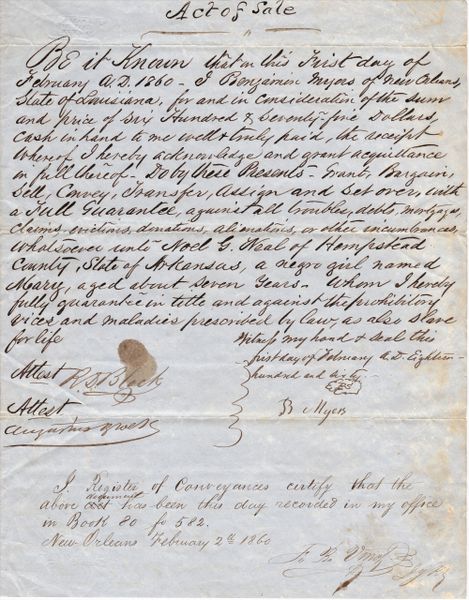 Act of Sale
BE it Known that on this First day of
February A.D. 1860 - I Benjamin Myers of New Orleans,
State of Louisiana, for and in consideration of the sum
and price of Six Hundred & Seventy-five Dollars,
Cash in hand to me well & truly paid, the receipt
whereof I hereby acknowledge and grant acquittance
in full thereof - Do by these Presents - Grant, Bargain,
Sell, Convey, Transfer, Assign and Set over, with
a Full Guarantee, against all troubles, debts, mortgages,
claims, evictions, donations, alienations, or other incumbrances,
whatsoever unto Noel G. Neal of Hempstead
County, State of Arkansas, a negro girl named
Mary, aged about Seven Years - Whom I hereby
fully guarantee in title and against the prohibitory
vices and maladies prescribed by law, as also slave
for life
Witness my hand & seal this
first day of February A.D. Eighteen
hundred and sixty -
Attest
B Myers
Attest
I Register of Conveyances certify that the
above document has been this day recorded in my office
in Book 80 fo 582.
New Orleans February 2d 1860